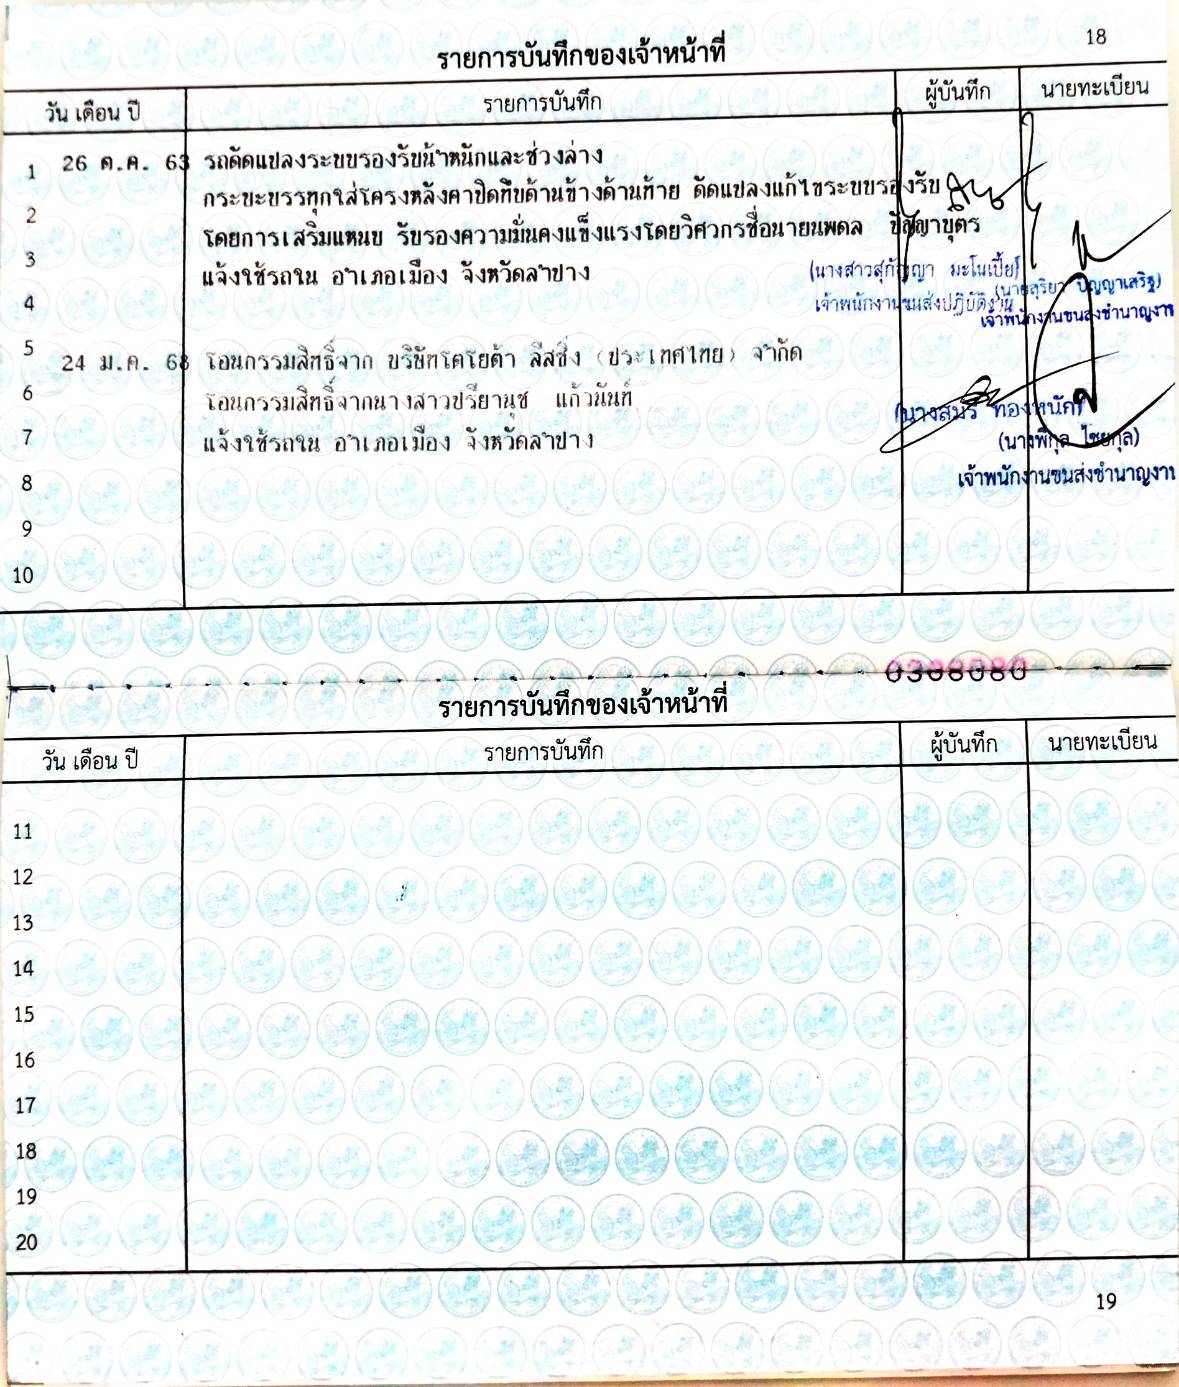 18
รายการบันทึกของเจ้าหน้าที่
วัน เดือน ปี รายการบันทึก ผู้บันทึก นายทะเบียน
1 26 ต.ค. 63 รถดัดแปลงระบบรองรับน้ำหนักและช่วงล่าง
2 กระบะบรรทุกใส่โครงหลังคาปิดทึบด้านข้างด้านท้าย ดัดแปลงแก้ไขระบบรองรับ
3 โดยการเสริมแหนบ รับรองความมั่นคงแข็งแรงโดยวิศวกรชื่อนายนพดล ปัญญาบุตร
4 แจ้งใช้รถใน อำเภอเมือง จังหวัดลำปาง
(นางสาวสุกัญญา มะโนเปี้ย)
เจ้าพนักงานขนส่งปฏิบัติงาน
(นายสุริยา ปัญญาเสริฐ)
เจ้าพนักงานขนส่งชำนาญงาน
5 24 ม.ค. 68 โอนกรรมสิทธิ์จาก บริษัทโตโยต้า ลีสซิ่ง (ประเทศไทย) จำกัด
6 โอนกรรมสิทธิ์จากนางสาวปรียานุช แก้วนันท์
7 แจ้งใช้รถใน อำเภอเมือง จังหวัดลำปาง
ทองหนัก)
(นางพิกุล ไชยกุล)
เจ้าพนักงานขนส่งชำนาญงาน
8
9
10
0308080
รายการบันทึกของเจ้าหน้าที่
วัน เดือน ปี รายการบันทึก ผู้บันทึก นายทะเบียน
11
12
13
14
15
16
17
18
19
20
19